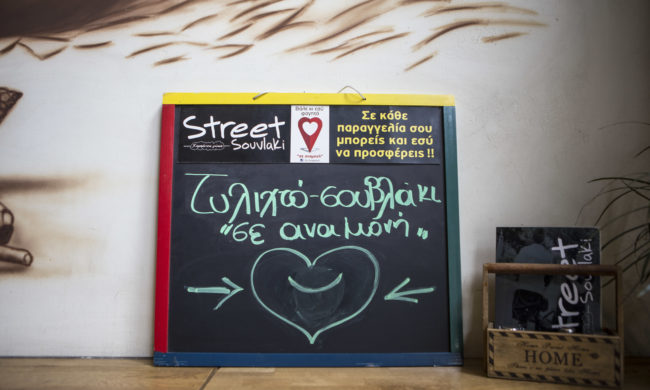 Street
Souvlaki
Βάλε κι εσύ
φαγητό
"σε αναμονή"
Σε κάθε
παραγγελία σου
μπορείς και εσύ
να προσφέρεις !!
Τυλιχτό-σουβλάκι
"σε αναμονή"
Street
Souvlaki
HOME